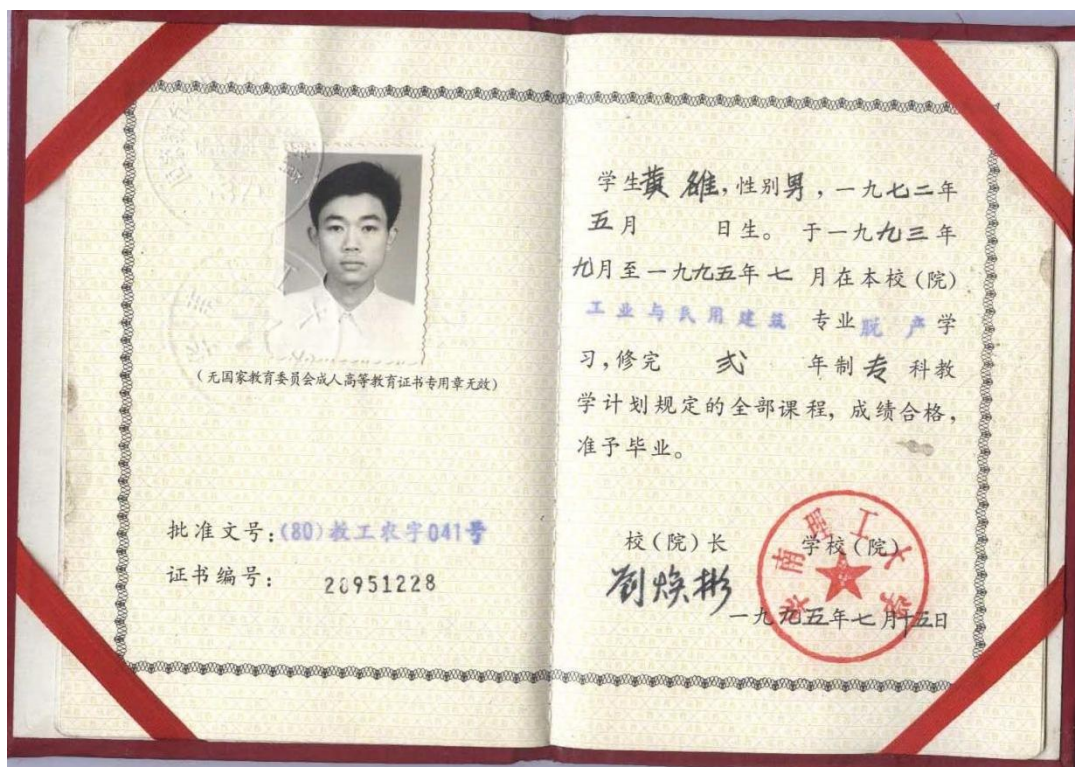 (无国家教育委员会成人高等教育证书专用章无效)
批准文号:(80)教工农字041号
证书编号: 20951228
学生黄雄,性别男,一九七二年
五月 日生。 于一九九三年
九月至一九九五年七 月在本校(院)
工业与民用建筑 专业脱产学
习,修完 弍 年制专 科教
学计划规定的全部课程, 成绩合格,
准予毕业。
校(院)长 学校(院)
劉焕彬
一九九五年七月十五日
华南理工大学